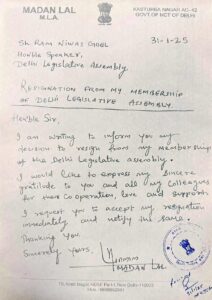 MADAN LAL
M.L.A.
KASTURBA NAGAR AC-42
GOVT. OF NCT OF DELHI
31-1-25
Sh. RAM NIWAS GOEL
Hon'ble Speaker,
Delhi Legislative Assembly.
RESIGNATION FROM MY MEMBERSHIP
OF DELHI LEGISLATIVE ASSEMBLY
Hon'ble Sir,
I am writing to inform you my
decision to resign from my membership
of the Delhi Legislative Assembly.
I would like to express my sincere
gratitude to you and all my Colleagues
for their Co operation, love and support.
I request you to accept my resignation
immediately and notify the same.
Thanking You
Sincerely Yours,
MADAN LAL